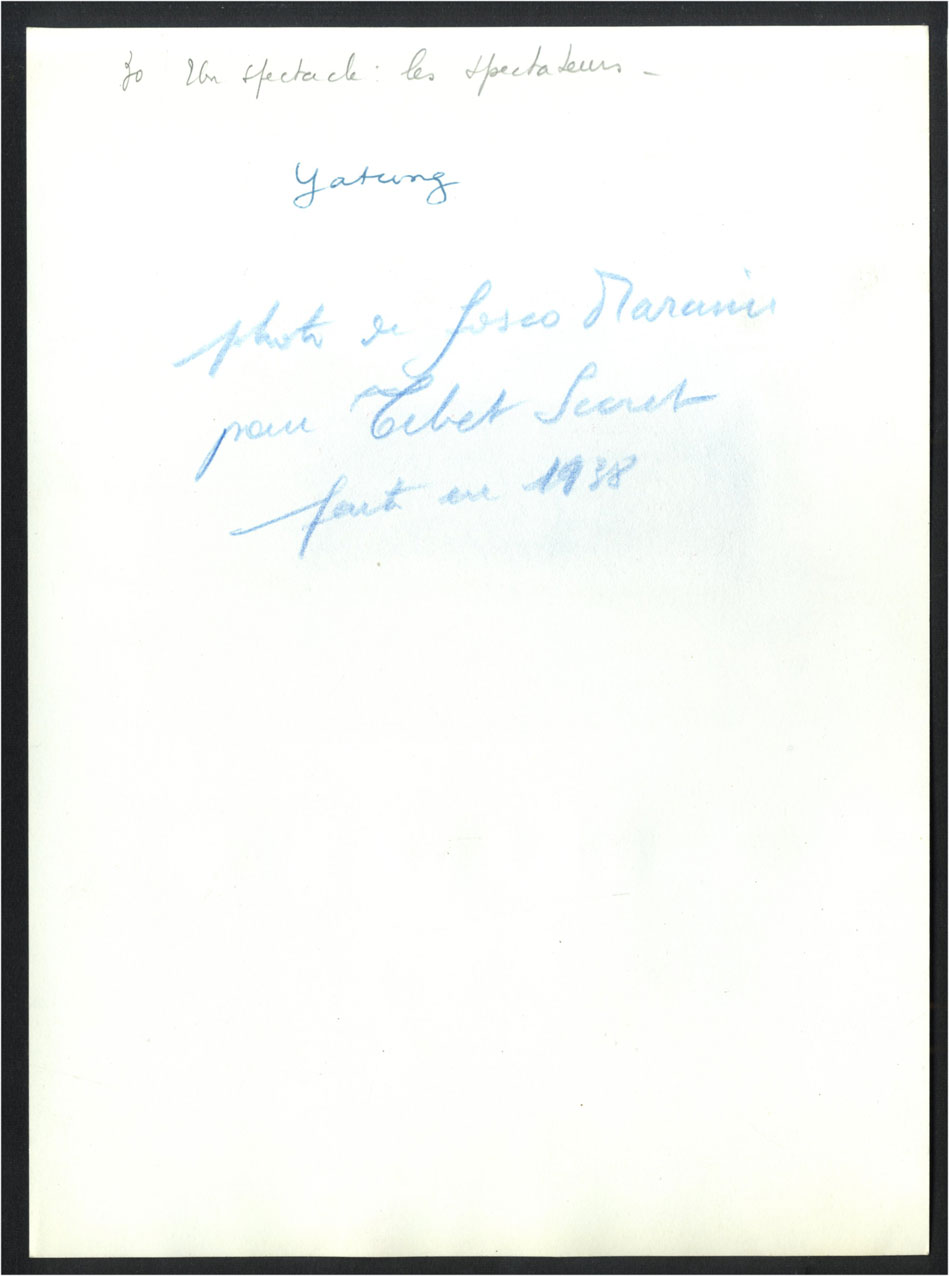 30 Un spectacle : les spectateurs -
Yatung
photo de Fosco Maraini
pour Tibet Secret
faite en 1938